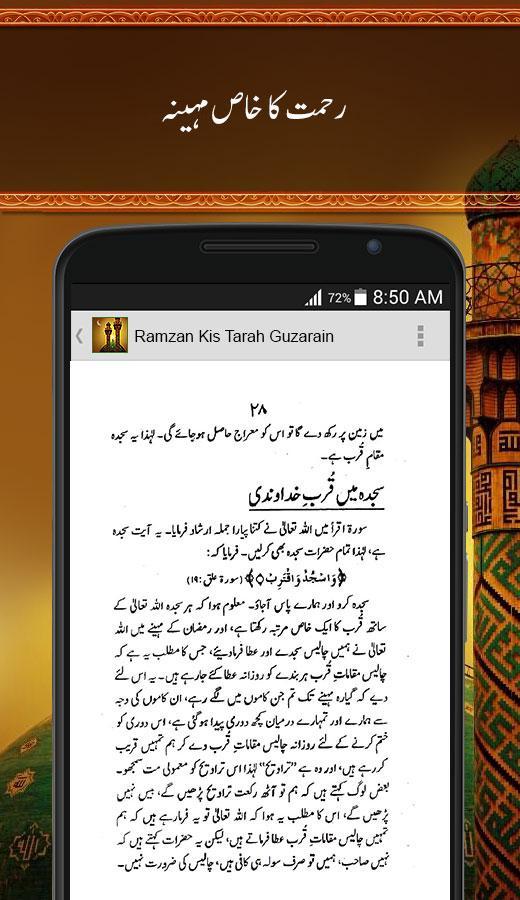 رحمت کا خاص مہینہ
72% 8:50 AM
Ramzan Kis Tarah Guzarain
۲۸
میں زمین پر رکھ دے گا تو اس کو معراج حاصل ہو جائے گی۔ لہٰذا یہ سجدہ
مقامِ قُرب ہے۔
سجدہ میں قُربِ خداوندی
سورۃ اقرأ میں اللہ تعالیٰ نے کتنا پیارا جملہ ارشاد فرمایا۔ یہ آیت سجدہ
ہے، لہٰذا تمام حضرات سجدہ بھی کرلیں۔ فرمایا کہ:
﴿وَاسْجُدْ وَاقْتَرِبْ﴾ (سورۃ علق:۱۹)
سجدہ کرو اور ہمارے پاس آجاؤ۔ معلوم ہوا کہ ہر سجدہ اللہ تعالیٰ کے
ساتھ قُرب کا ایک خاص مرتبہ رکھتا ہے، اور رمضان کے مہینے میں اللہ
تعالیٰ نے ہمیں چالیس سجدے اور عطا فرما دیئے، جس کا مطلب یہ ہے کہ
چالیس مقاماتِ قُرب ہر بندے کو روزانہ عطا کئے جا رہے ہیں۔ یہ اس لئے
دیے کہ گیارہ مہینے تک تم جن کاموں میں لگے رہے، ان کاموں کی وجہ
سے ہمارے اور تمہارے درمیان کچھ دوری پیدا ہوگئی ہے، اس دوری کو
ختم کرنے کے لئے روزانہ چالیس مقاماتِ قُرب دے کر ہم تمہیں قریب
کر رہے ہیں، اور وہ ہے "تراویح" لہٰذا اس تراویح کو معمولی مت سمجھو۔
بعض لوگ کہتے ہیں کہ ہم تو آٹھ رکعت تراویح پڑھیں گے، بیس نہیں
پڑھیں گے، اس کا مطلب یہ ہوا کہ اللہ تعالیٰ تو یہ فرما رہے ہیں کہ ہم
تمہیں چالیس مقاماتِ قُرب عطا فرماتے ہیں، لیکن یہ حضرات کہتے ہیں کہ
نہیں صاحب، ہمیں تو صرف سولہ ہی کافی ہیں، چالیس کی ضرورت نہیں۔